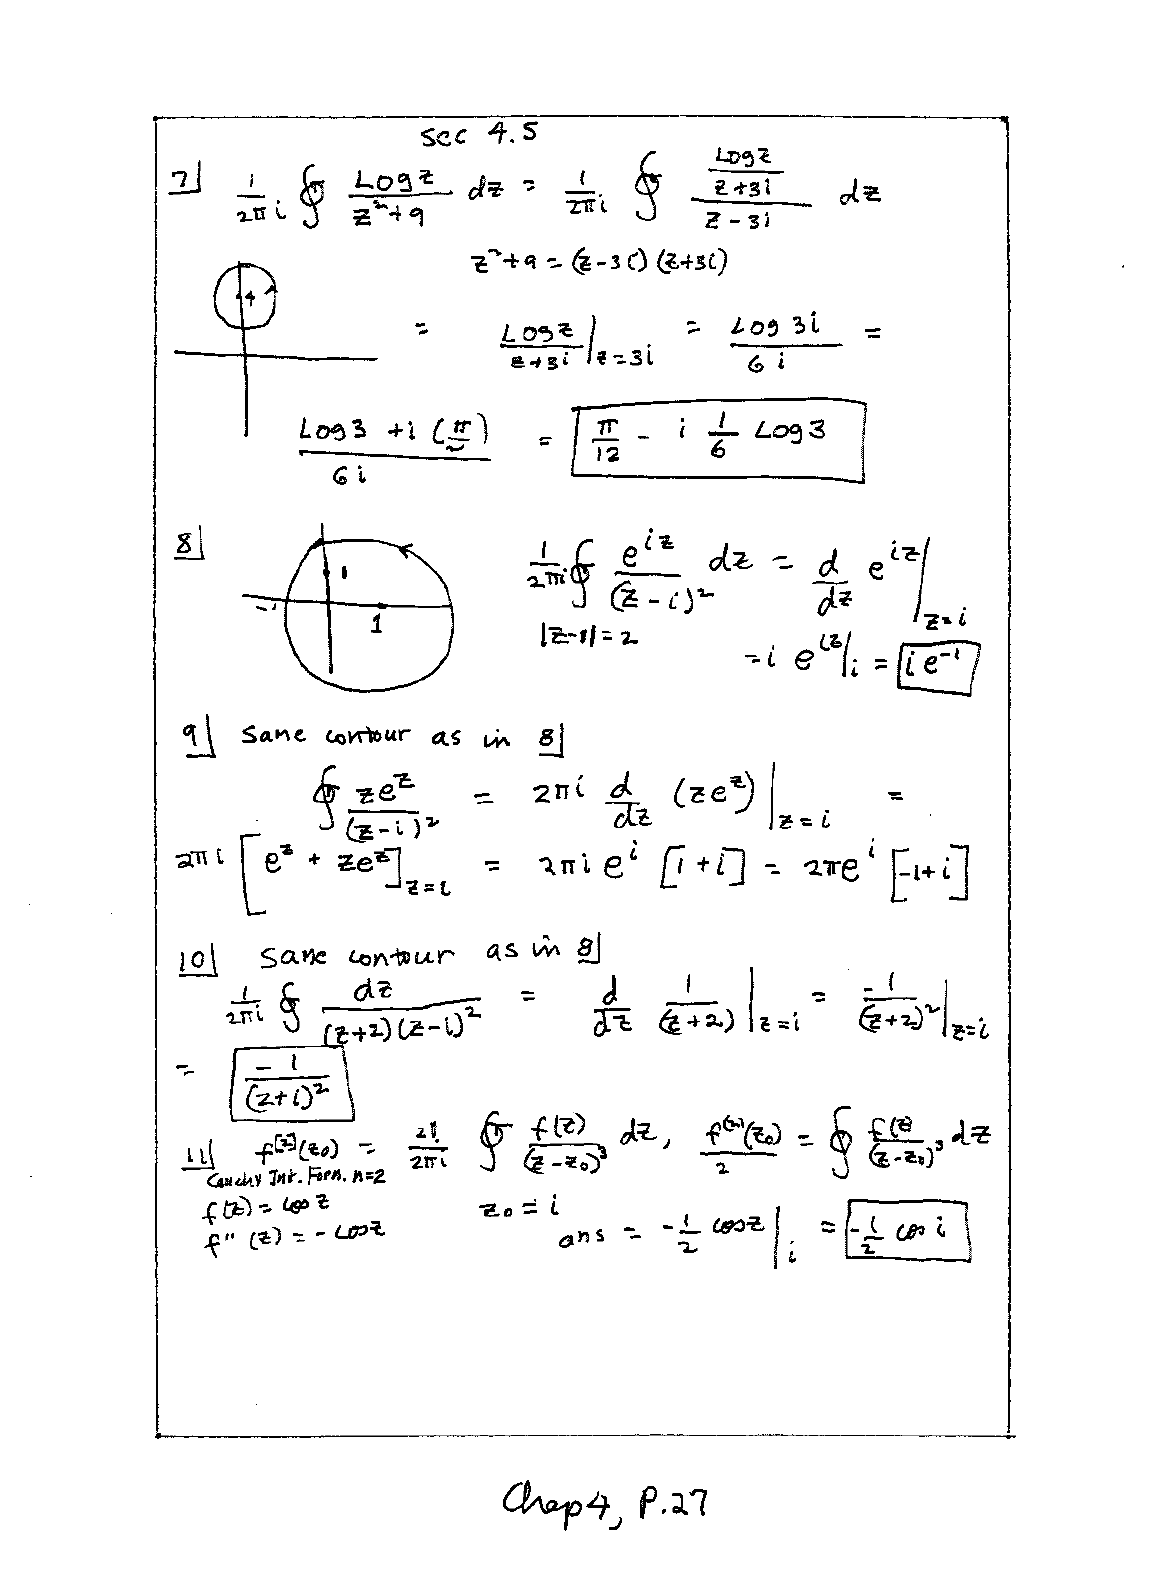 sec 4.5
7] 1/(2πi) ∮ Log z/(z²+9) dz = 1/(2πi) ∮ (Log z/(z+3i))/(z-3i) dz
z²+9 = (z-3i)(z+3i)
4
= Log z/(z+3i) |z=3i = Log 3i/(6i) =
(Log 3 + i(π/2))/(6i) = π/12 - i 1/6 Log 3
8] 1/(2πi) ∮ e^{iz}/(z-i)² dz = d/dz e^{iz} |z=i
-1 1 1
|z-1|=2
= i e^{iz}|i = i e^{-1}
9] Same contour as in 8]
∮ ze^z/(z-i)² = 2πi d/dz (ze^z) |z=i =
2πi [e^z + ze^z]z=i = 2πi e^i [1+i] = 2πe^i [-1+i]
10] Same contour as in 8]
1/(2πi) ∮ dz/((z+2)(z-i)²) = d/dz 1/(z+2) |z=i = -1/(z+2)² |z=i
= -1/(2+i)²
11] f^{[2]}(z₀) = 2!/(2πi) ∮ f(z)/(z-z₀)³ dz, f^{(2)}(z₀)/2 = ∮ f(z)/(z-z₀)³ dz
Cauchy Int. Form. n=2
f(z) = cos z z₀ = i
f"(z) = -cos z ans = -1/2 cos z |i = -1/2 cos i
Chap 4, P.27